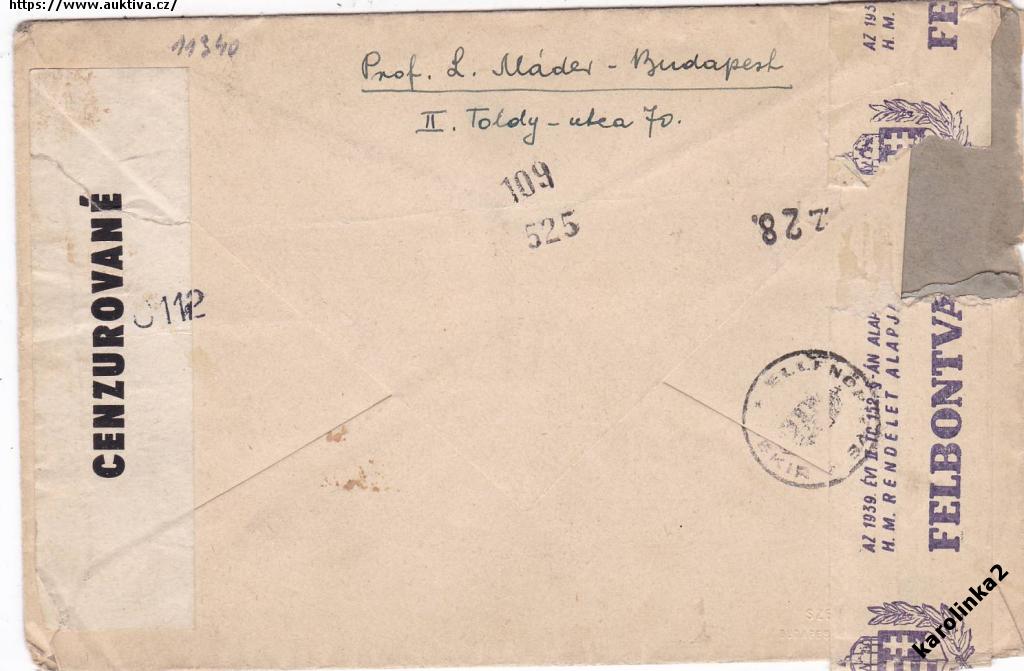 https://www.auktiva.cz/
11340
Prof. L. Máder - Budapest
II. Toldy-utca 70.
109
525
228.
CENZUROVANÉ
0112
AZ 193
H. M.
FE
AZ 1939. ÉVI II. TC. 152. §-ÁN ALAP
H. M. RENDELET ALAPJ
FELBONTVA
ELLENŐ
karolinka2